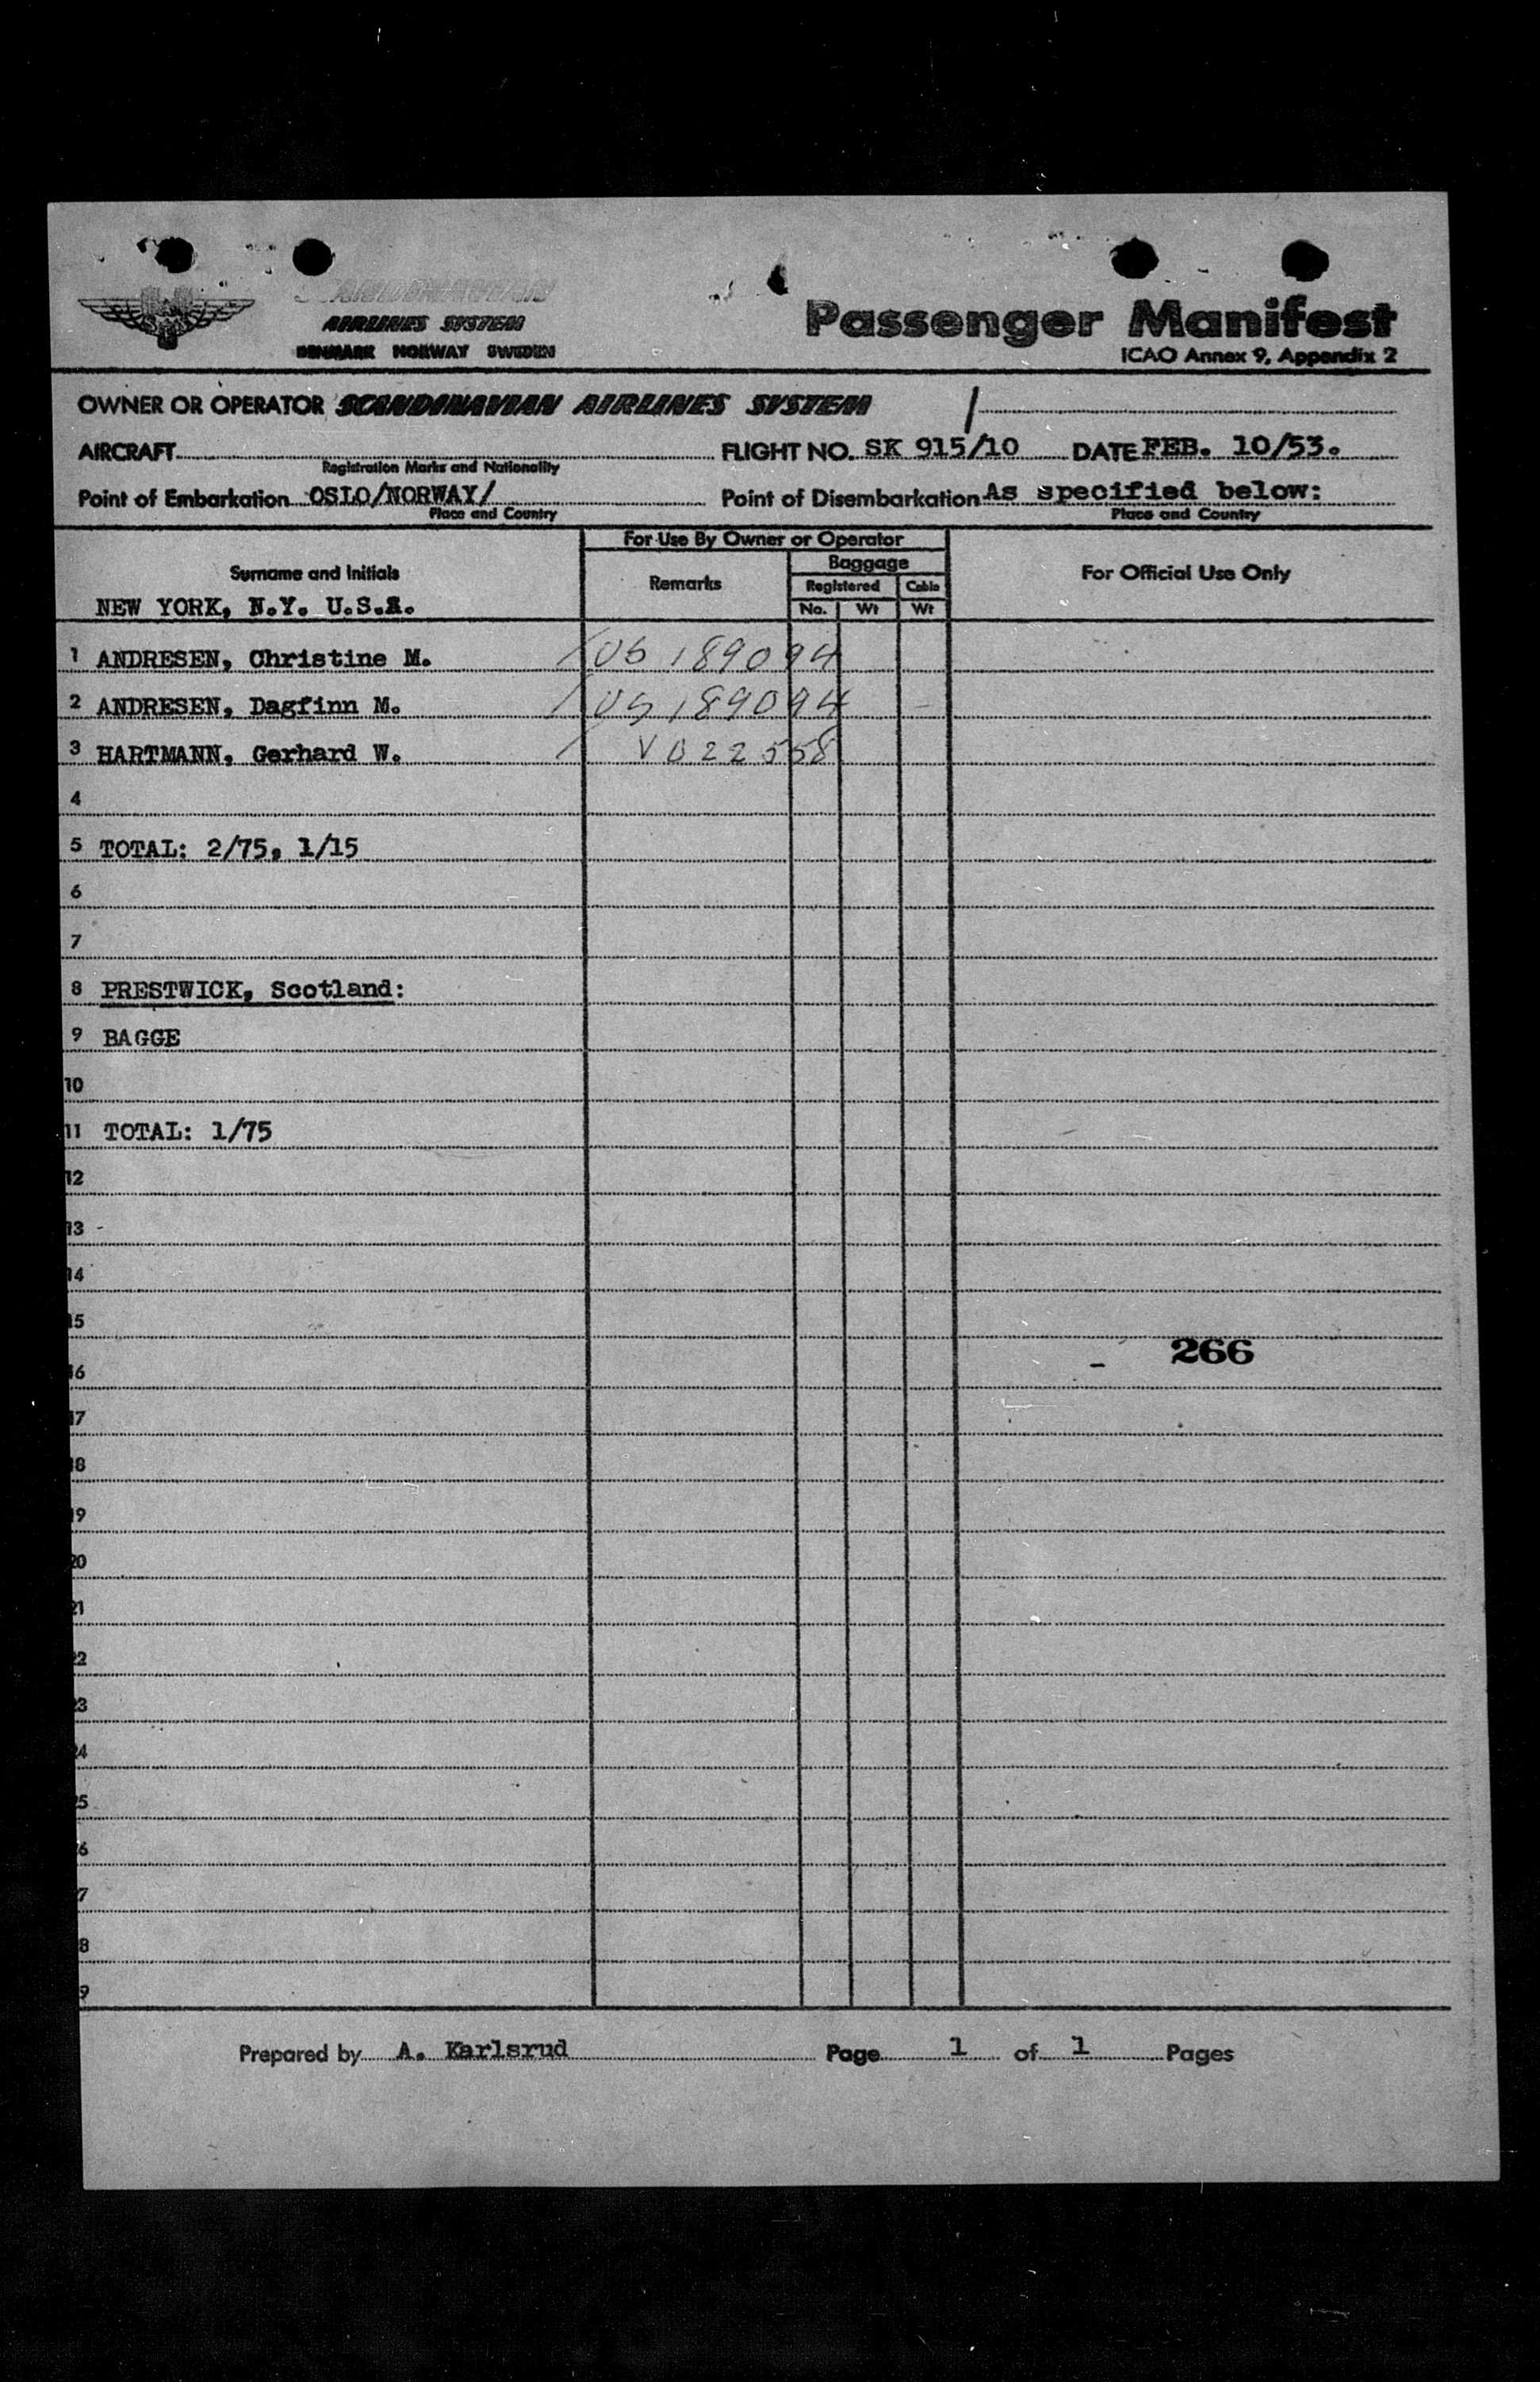 SCANDINAVIAN
AIRLINES SYSTEM
DENMARK NORWAY SWEDEN
SAS
Passenger Manifest
ICAO Annex 9, Appendix 2
OWNER OR OPERATOR SCANDINAVIAN AIRLINES SYSTEM /
AIRCRAFT FLIGHT NO. SK 915/10 DATE FEB. 10/53.
Registration Marks and Nationality
Point of Embarkation OSLO/NORWAY/ Point of Disembarkation As specified below:
Place and Country Place and Country
For Use By Owner or Operator
Surname and Initials Remarks Baggage For Official Use Only
Registered Cabin
NEW YORK, N.Y. U.S.A. No. Wt Wt
1 ANDRESEN, Christine M. / US 189094
2 ANDRESEN, Dagfinn M. / US 189094
3 HARTMANN, Gerhard W. / V 022558
4
5 TOTAL: 2/75, 1/15
6
7
8 PRESTWICK, Scotland:
9 BAGGE
10
11 TOTAL: 1/75
12
13 -
14
15
266
16
17
18
19
20
21
22
23
24
25
6
7
8
9
Prepared by A. Karlsrud Page 1 of 1 Pages